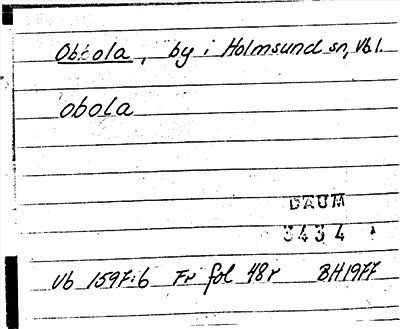 Obbola, by i Holmsund sn, Vb l.
obola
DAUM
3434
Vb 1597:6 Fr fol 48r BH1977